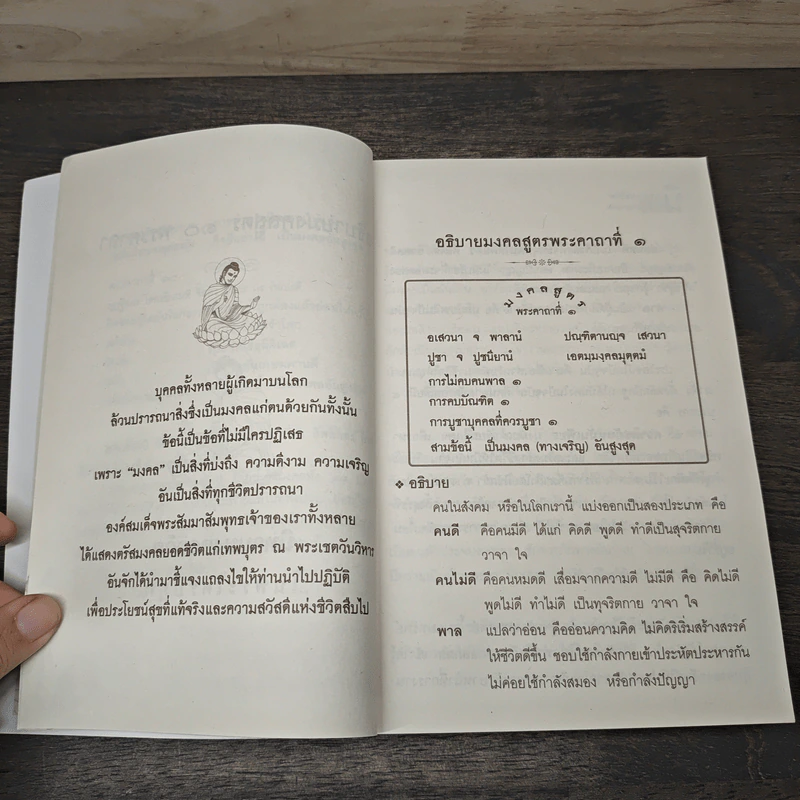 บุคคลทั้งหลายผู้เกิดมาบนโลก
ล้วนปรารถนาสิ่งซึ่งเป็นมงคลแก่ตนด้วยกันทั้งนั้น
ข้อนี้เป็นข้อที่ไม่มีใครปฏิเสธ
เพราะ “มงคล” เป็นสิ่งที่บ่งถึง ความดีงาม ความเจริญ
อันเป็นสิ่งที่ทุกชีวิตปรารถนา
องค์สมเด็จพระสัมมาสัมพุทธเจ้าของเราทั้งหลาย
ได้แสดงตรัสมงคลยอดชีวิตแก่เทพบุตร ณ พระเชตวันวิหาร
อันจักได้นำมาชี้แจงแถลงไขให้ท่านนำไปปฏิบัติ
เพื่อประโยชน์สุขที่แท้จริงและความสวัสดีแห่งชีวิตสืบไป
อธิบายมงคลสูตรพระคาถาที่ ๑
มงคลสูตร
พระคาถาที่ ๑
อเสวนา จ พาลานํ ปณฺฑิตานญฺจ เสวนา
ปูชา จ ปูชนียานํ เอตมฺมงฺคลมุตฺตมํ
การไม่คบคนพาล ๑
การคบบัณฑิต ๑
การบูชาบุคคลที่ควรบูชา ๑
สามข้อนี้ เป็นมงคล (ทางเจริญ) อันสูงสุด
❖ อธิบาย
คนในสังคม หรือในโลกเรานี้ แบ่งออกเป็นสองประเภท คือ
คนดี คือคนมีดี ได้แก่ คิดดี พูดดี ทำดีเป็นสุจริตกาย
วาจา ใจ
คนไม่ดี คือคนหมดดี เสื่อมจากความดี ไม่มีดี คือ คิดไม่ดี
พูดไม่ดี ทำไม่ดี เป็นทุจริตกาย วาจา ใจ
พาล แปลว่าอ่อน คืออ่อนความคิด ไม่คิดริเริ่มสร้างสรรค์
ให้ชีวิตดีขึ้น ชอบใช้กำลังกายเข้าประหัตประหารกัน
ไม่ค่อยใช้กำลังสมอง หรือกำลังปัญญา